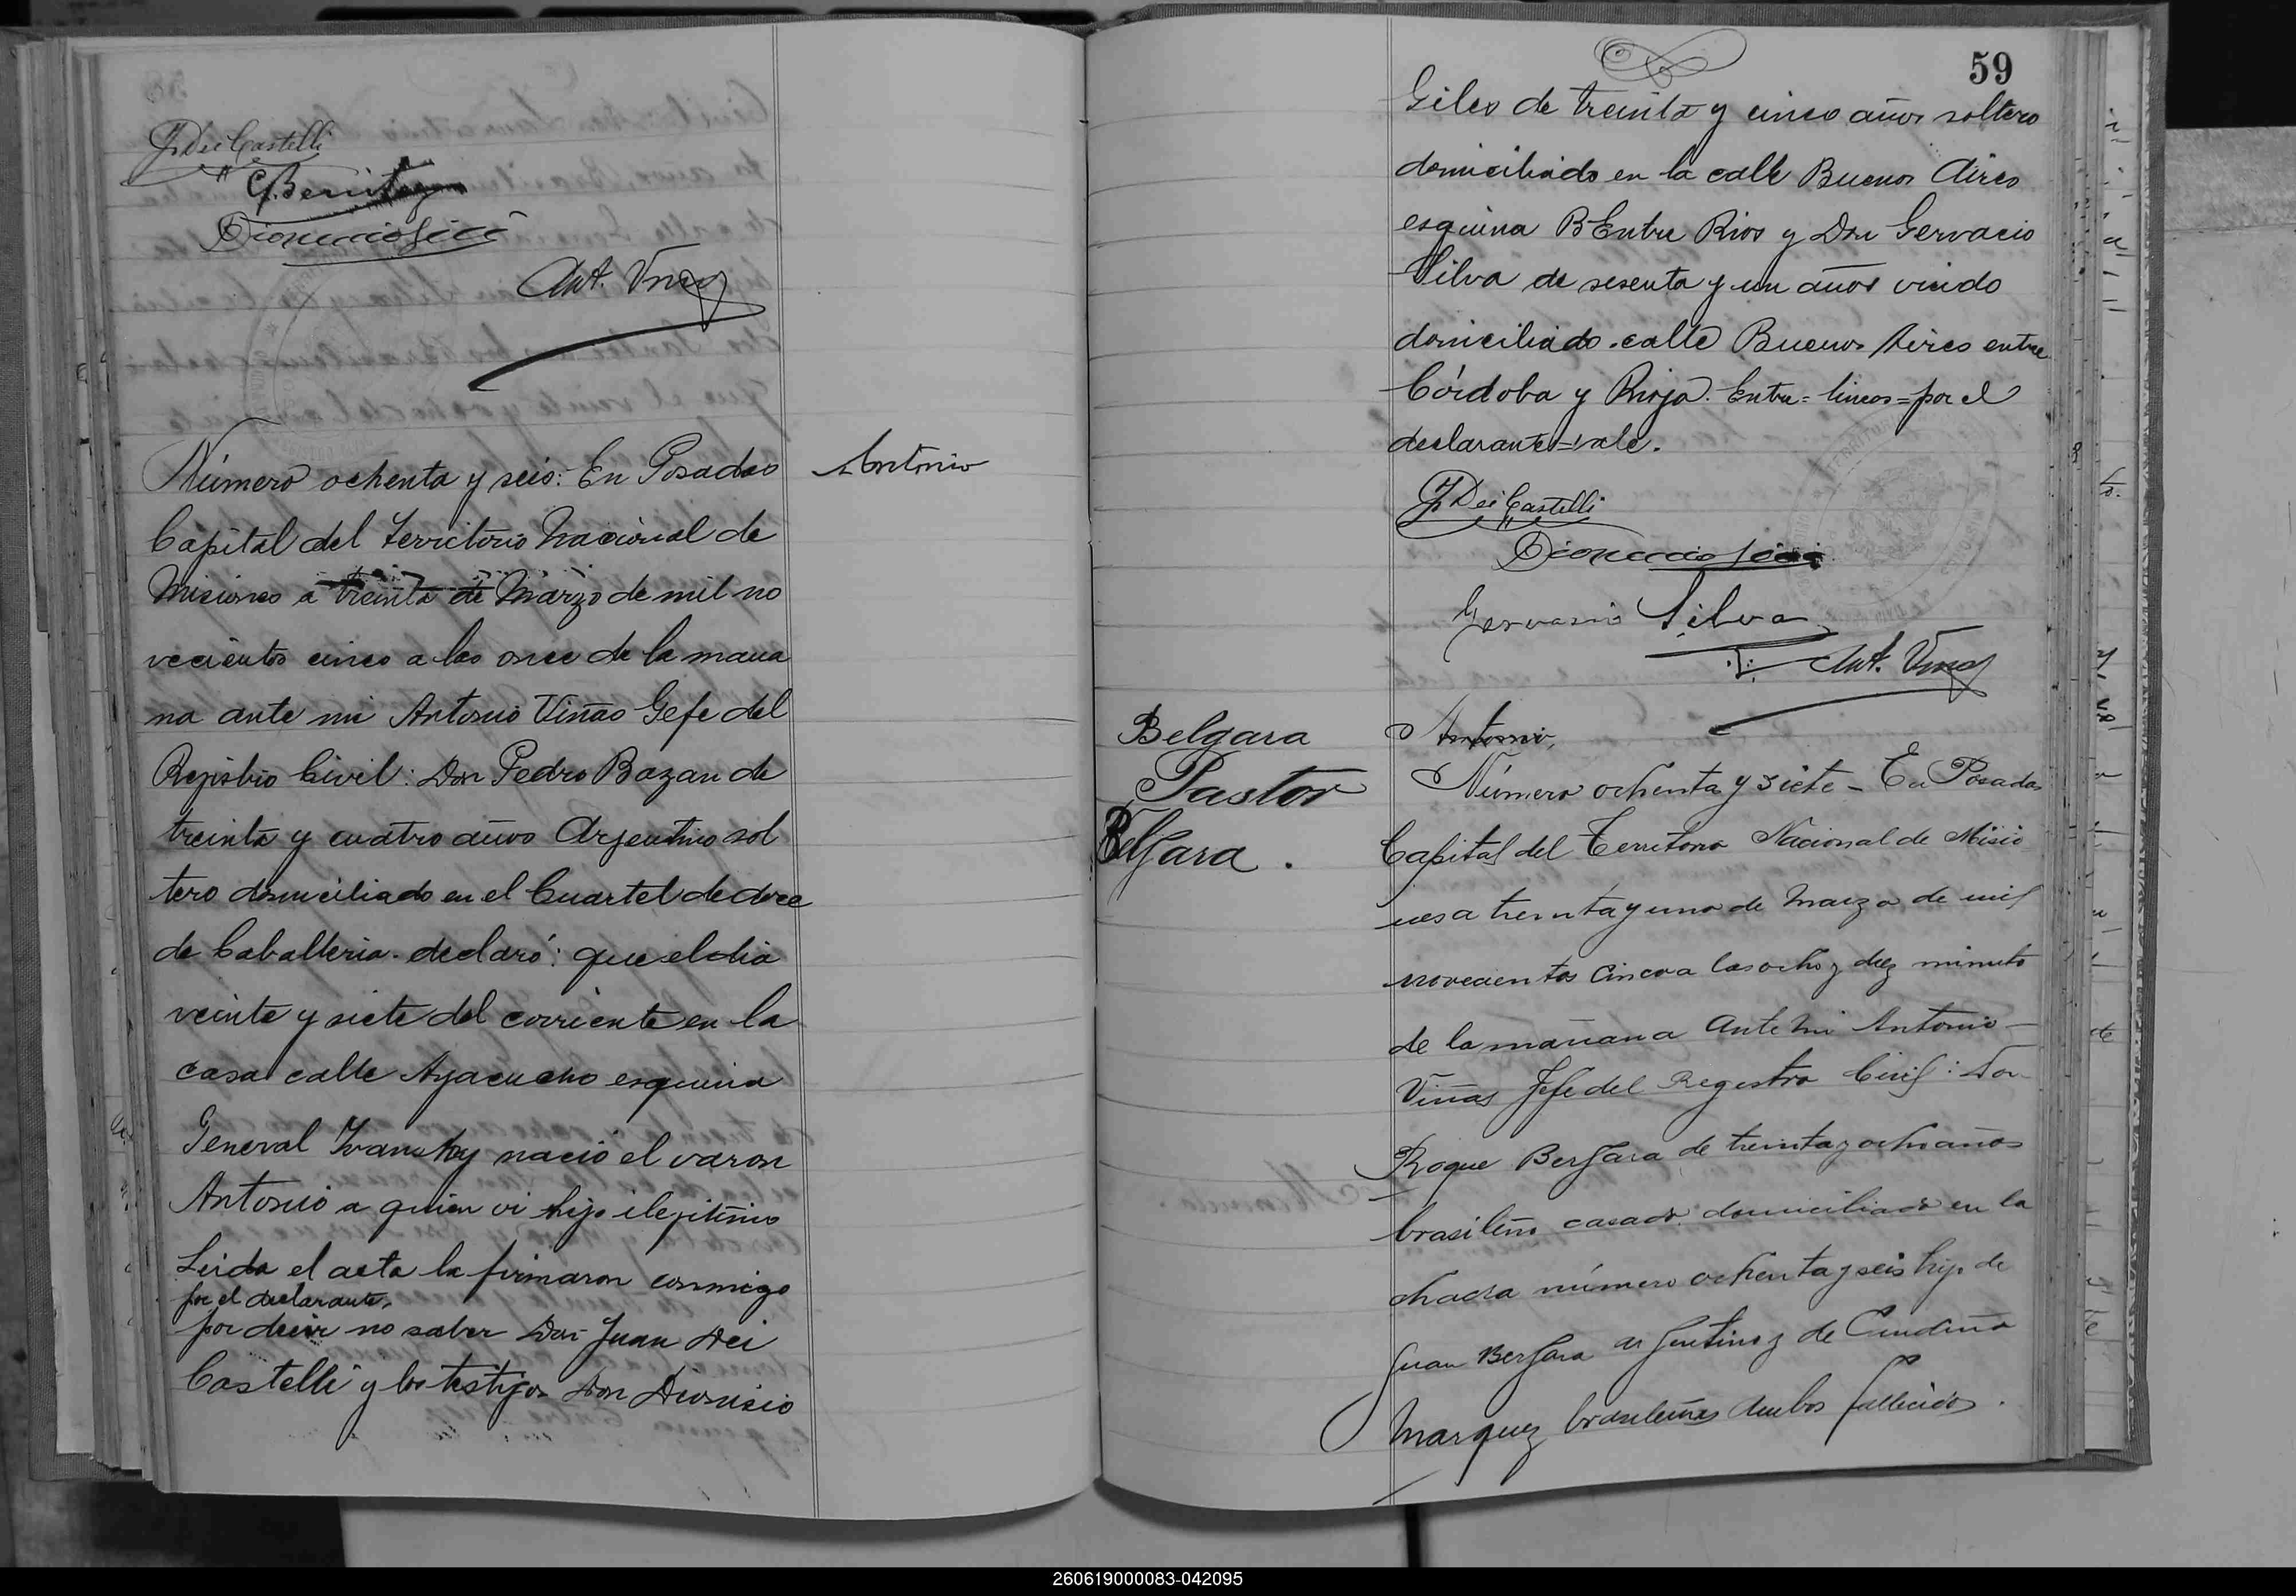 J. Dei Castelli
C. Benitez
Dionicio Gili
Ant. Vinas
Número ochenta y seis: En Posadas
Antonio
Capital del Territorio Nacional de
Misiones a treinta de Marzo de mil no
vecientos cinco a las once de la maña
na ante mi Antonio Viñas Gefe del
Registro Civil: Don Pedro Bazan de
treinta y cuatro años Argentino sol
tero domiciliado en el Cuartel de doce
de Caballeria. declaró: que el dia
veinte y siete del corriente en la
casa calle Ayacucho esquina
General nació el varon
Antonio a quien vi hijo ilegitimo
Leida el acta la firmaron conmigo
por el declarante,
por decir no saber Don Juan Dei
Castelli y los testigos Don Dionisio
59
Giles de treinta y cinco años soltero
domiciliado en la calle Buenos Aires
esquina Entre Rios y Don Gervacio
Silva de sesenta y un años viudo
domiciliado calle Buenos Aires entre
Córdoba y Rioja. Entre=lineas=por el
declarante=vale.
J. Dei Castelli
Dionicio Gili
Gervasio Silva
Ant. Vinas
Belgara
Pastor
Belgara.
Antonio,
Número ochenta y siete - En Posadas
Capital del Territorio Nacional de Misio
nes a treinta y uno de Marzo de mil
novecientos cinco a las ocho y diez minuto
de la mañana Ante mi Antonio
Viñas Jefe del Registro Civil: Don
Roque Bergara de treinta y ocho años
brasileño casado domiciliado en la
chacra número ochenta y seis hijo de
Juan Bergara argentino y de
Marquez brasileña ambos fallecidos.
260619000083-042095